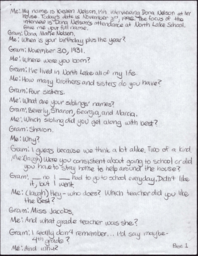 Me: My name is Kristin Nelson, I'm interviewing Dona Nelson at her
house. Today's date is November 3rd, 1992. The focus of the
interview is Dona Nelson's attendance at North Lake School.
Give me your full name.
Gram: Dona Mattie Nelson.
Me: When is your birthday plus the year?
Gram: November 30, 1931.
Me: Where were you born?
Gram: I've lived in North Lake all of my life.
Me: How many brothers and sisters do you have?
Gram: Four sisters.
Me: What are your sisters' names?
Gram: Beverly, Sharon, Georgia, and Marcia.
Me: Which sibling did you get along with best?
Gram: Sharon.
Me: Why?
Gram: I guess because we think a lot alike. Two of a kind.
Me: (laugh) Were you consistent about going to school or did
you stay home to help around the house?
Gram: no I had to go to school everyday. Didn't like
it, but I went
Me: (laugh) Hey- who does? Which teacher did you like
the Best?
Gram: Miss Jacobs.
Me: And what grade teacher was she?
Gram: I really don't remember... I'd say maybe-
4th grade?
Me: And why?
Page 1